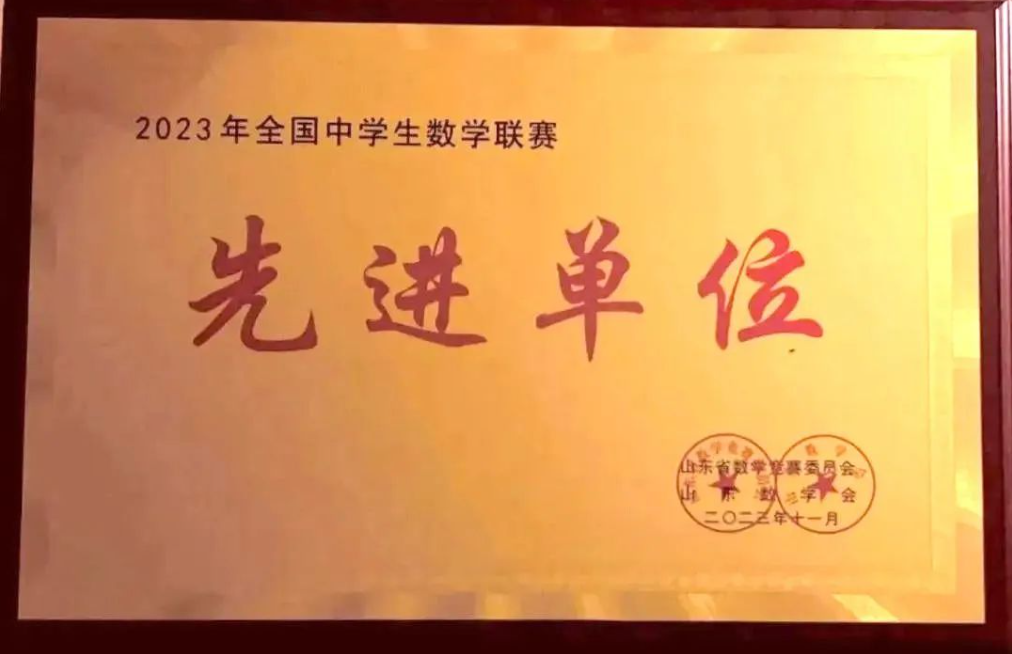 2023年全国中学生数学联赛
先进单位
山东省数学竞赛委员会
山东数学会
二〇二三年十一月